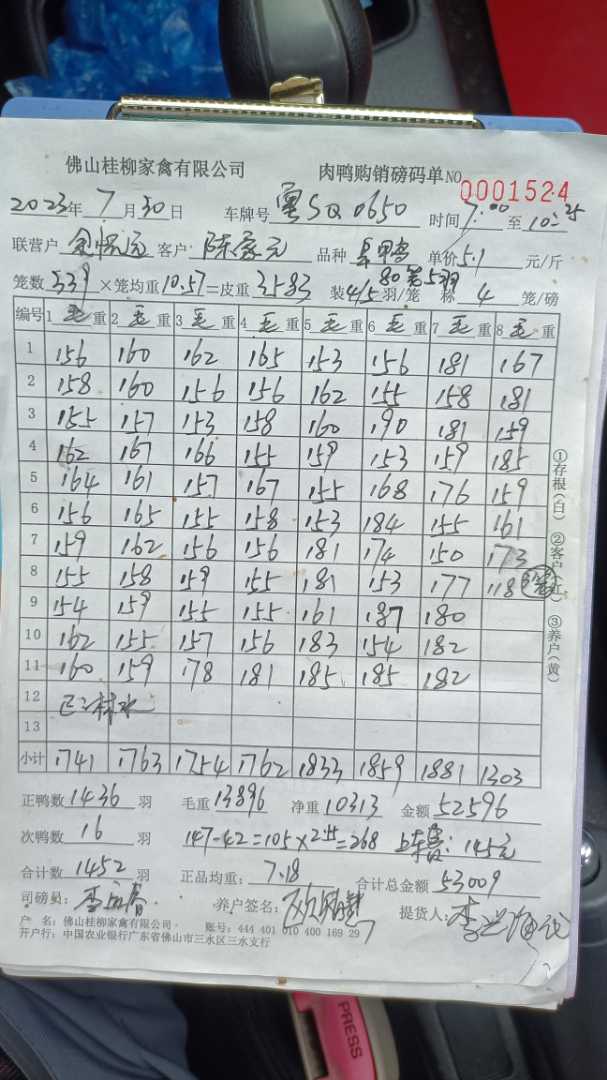 佛山桂柳家禽有限公司 肉鸭购销磅码单 NO 0001524
2023年 7 月 30 日 车牌号 粤SQ0650 时间 7:00 至 10:25
联营户 客户 陈家元 品种 单价 5.1 元/斤
笼数 339 ×笼均重 10.57 =皮重 3583 装 4/5 羽/笼 称 4 笼/磅
80笼5羽
编号 1 毛 重 2 毛 重 3 毛 重 4 毛 重 5 毛 重 6 毛 重 7 毛 重 8 毛 重
1 156 160 162 165 153 156 181 167
2 158 160 156 156 162 155 158 181
3 155 157 153 158 160 190 181 159
4 162 167 166 155 159 153 159 185
5 164 161 157 167 155 168 176 159
6 156 165 155 158 153 184 155 161
7 159 162 156 156 181 174 150 173
8 155 158 159 155 181 153 177 118
9 154 159 155 155 161 187 180
10 162 155 157 156 183 154 182
11 160 159 178 181 185 185 182
12
13
小计 1741 1763 1754 1762 1833 1859 1881 1303
①存根(白) ②客户(红) ③养户(黄)
正鸭数 1436 羽 毛重 13896 净重 10313 金额 52596
次鸭数 16 羽 147-42=105×2.55=268 上车费:145元
合计数 1452 羽 正品均重: 7.18 合计总金额 53009
司磅员: 养户签名: 提货人:
户 名: 佛山桂柳家禽有限公司 账号: 444 401 010 400 169 29
开户行: 中国农业银行广东省佛山市三水区三水支行
PRESS